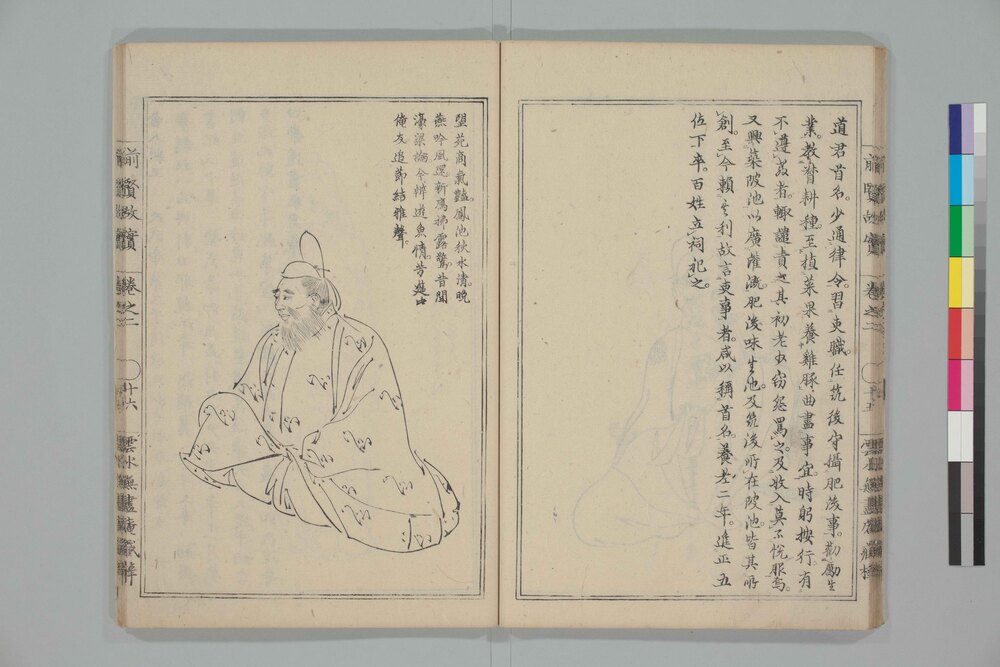 道君首名。少通律令。習吏職。任筑後守攝肥後事。勸勵生
業。教督耕種。至植菓果養雞豚曲盡事宜。時躬按行有
不遵教者。輙譴責之其初老少窃怨罵之。及收入莫不悅服焉。
又興築陂池以廣灌漑。肥後味生池及筑後所在陂池皆其所
創。至今賴其利故言吏事者。咸以稱首名。養老二年。進正五
位下卒。百姓立祠祀之。
望苑商氣豔。鳳池秋水清。晩
燕吟風還新鴈拂露驚。昔聞
濠梁論今辨遊魚情。芳筵此
僚友追節結雅聲。
前賢故實
卷之二
十五
前賢故實
卷之二
十六